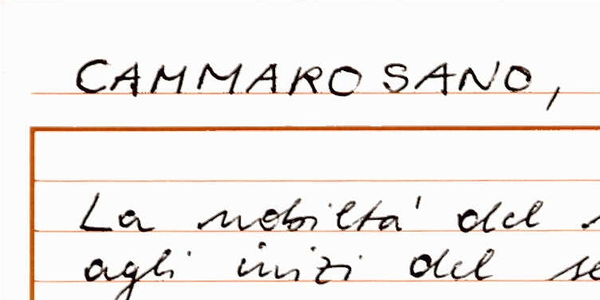 CAMMAROSANO,
La nobiltà del
agli inizi del